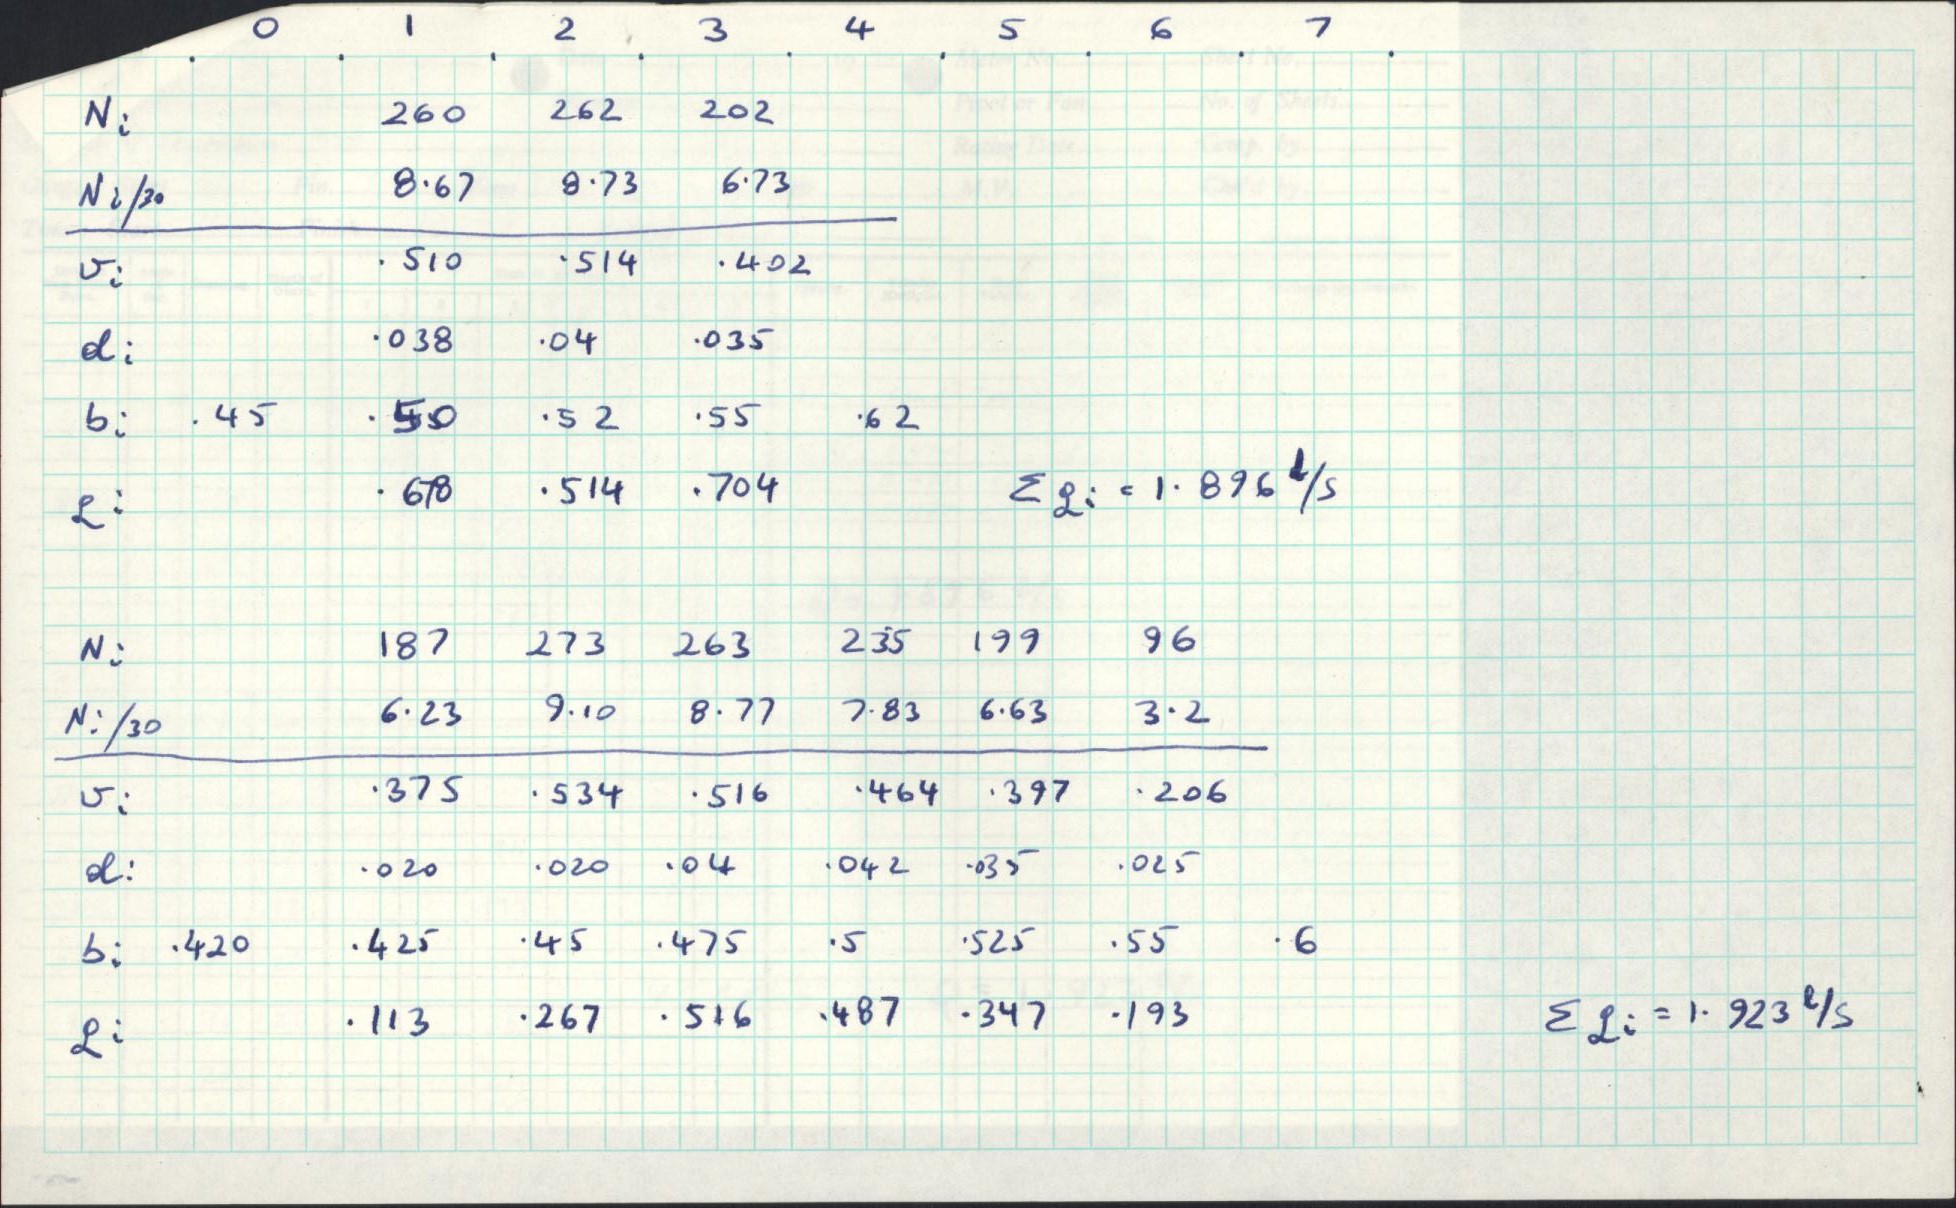 0 1 2 3 4 5 6 7
Ni 260 262 202
Ni/30 8.67 8.73 6.73
vi .510 .514 .402
di .038 .04 .035
bi .45 .50 .52 .55 .62
qi .678 .514 .704 Σqi = 1.896 l/s
Ni 187 273 263 235 199 96
Ni/30 6.23 9.10 8.77 7.83 6.63 3.2
vi .375 .534 .516 .464 .397 .206
di .020 .020 .04 .042 .035 .025
bi .420 .425 .45 .475 .5 .525 .55 .6
qi .113 .267 .516 .487 .347 .193 Σqi = 1.923 l/s